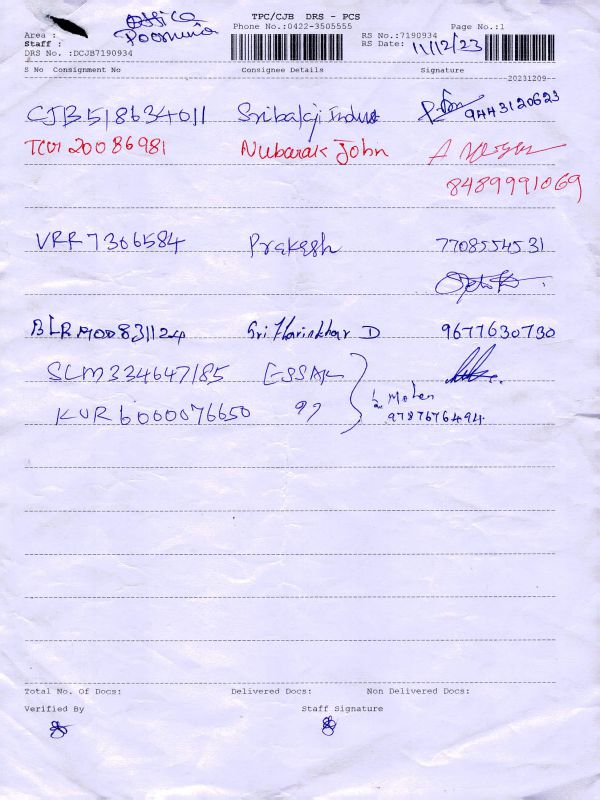 Office
Poornima
TPC/CJB DRS - PCS
Phone No.:0422-3505555
Page No.:1
Area :
Staff :
DRS No. :DCJB7190934
RS No.:7190934
RS Date: 11/12/23
S No Consignment No Consignee Details Signature
20231209
CJB518634011 Sribalaji Indust 9443120623
Nubarak John
8489991069
VRR7306584 Prakesh 7708554531
BLRM00831124 Sri Harinkhar D 9677630730
SLM334647185 ESSAK
KUR6000076650 97
Mohan
9787676494
Total No. Of Docs: Delivered Docs: Non Delivered Docs:
Verified By Staff Signature